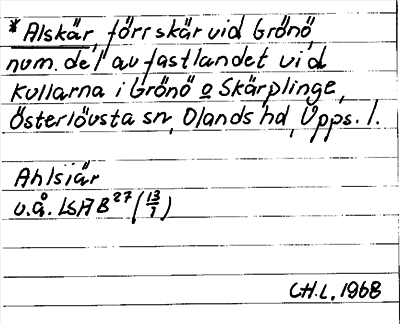 *Alskär, förr skär vid Grönö,
num. del av fastlandet vid
Kullarna i Grönö o Skärplinge,
Österlövsta sn, Olands hd, Upps. l.
Ahlsiär
u.å. LSA B²⁷ (13/7)
CH.L. 1968